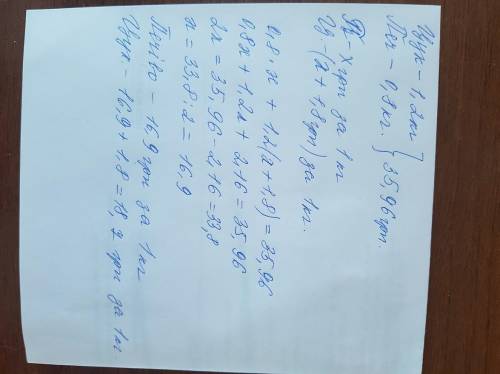 Цук - 1,2 кг } 35,96 грн.
Печ - 0,8 кг.
П - х грн за 1 кг
Цу - (х + 1,8 грн) за 1 кг.
0,8 · х + 1,2(х + 1,8) = 35,96
0,8х + 1,2х + 2,16 = 35,96
2х = 35,96 - 2,16 = 33,8
х = 33,8 : 2 = 16,9
Печиво - 16,9 грн за 1 кг
Цук - 16,9 + 1,8 = 18,7 грн за 1 кг